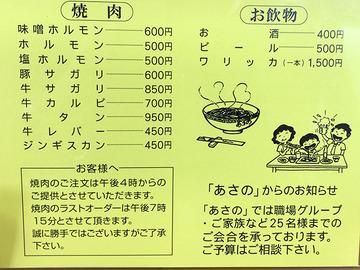 焼肉
味噌ホルモン 600円
ホルモン 500円
塩ホルモン 500円
豚サガリ 600円
牛サガリ 850円
牛カルビ 700円
牛タン 950円
牛レバー 450円
ジンギスカン 450円
お客様へ
焼肉のご注文は午後4時からの
ご提供とさせていただきます。
焼肉のラストオーダーは午後7時
15分とさせて頂きます。
誠に勝手ではございますがご了承
下さい。
お飲物
お酒 400円
ビール 500円
ワリッカ(一本) 1,500円
「あさの」からのお知らせ
「あさの」では職場グループ
・ご家族など25名様までの
ご会合を承っております。
ご予算はご相談下さい。